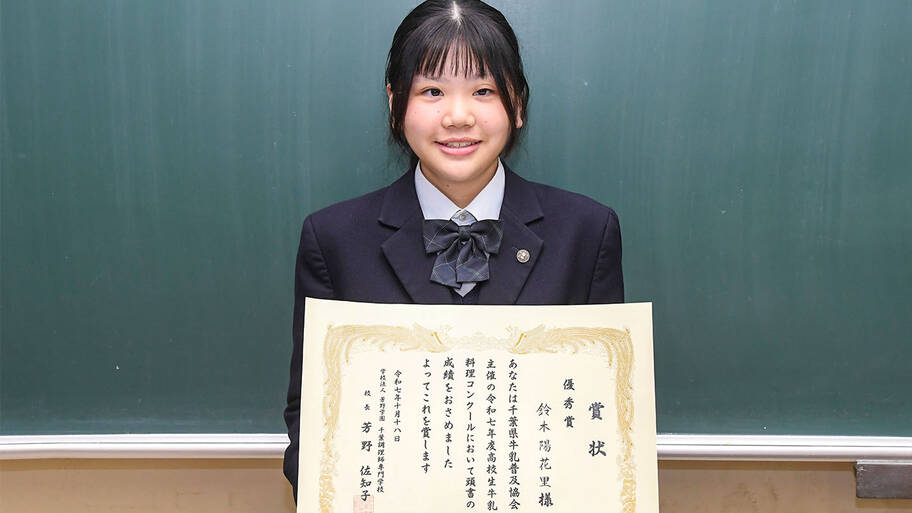 賞状
優秀賞
鈴木陽花里様
あなたは千葉県牛乳普及協会
主催の令和七年度高校生牛乳
料理コンクールにおいて頭書の
成績をおさめました
よってこれを賞します
令和七年十月十八日
学校法人 芳野学園 千葉調理師専門学校
校長 芳野 佐知子